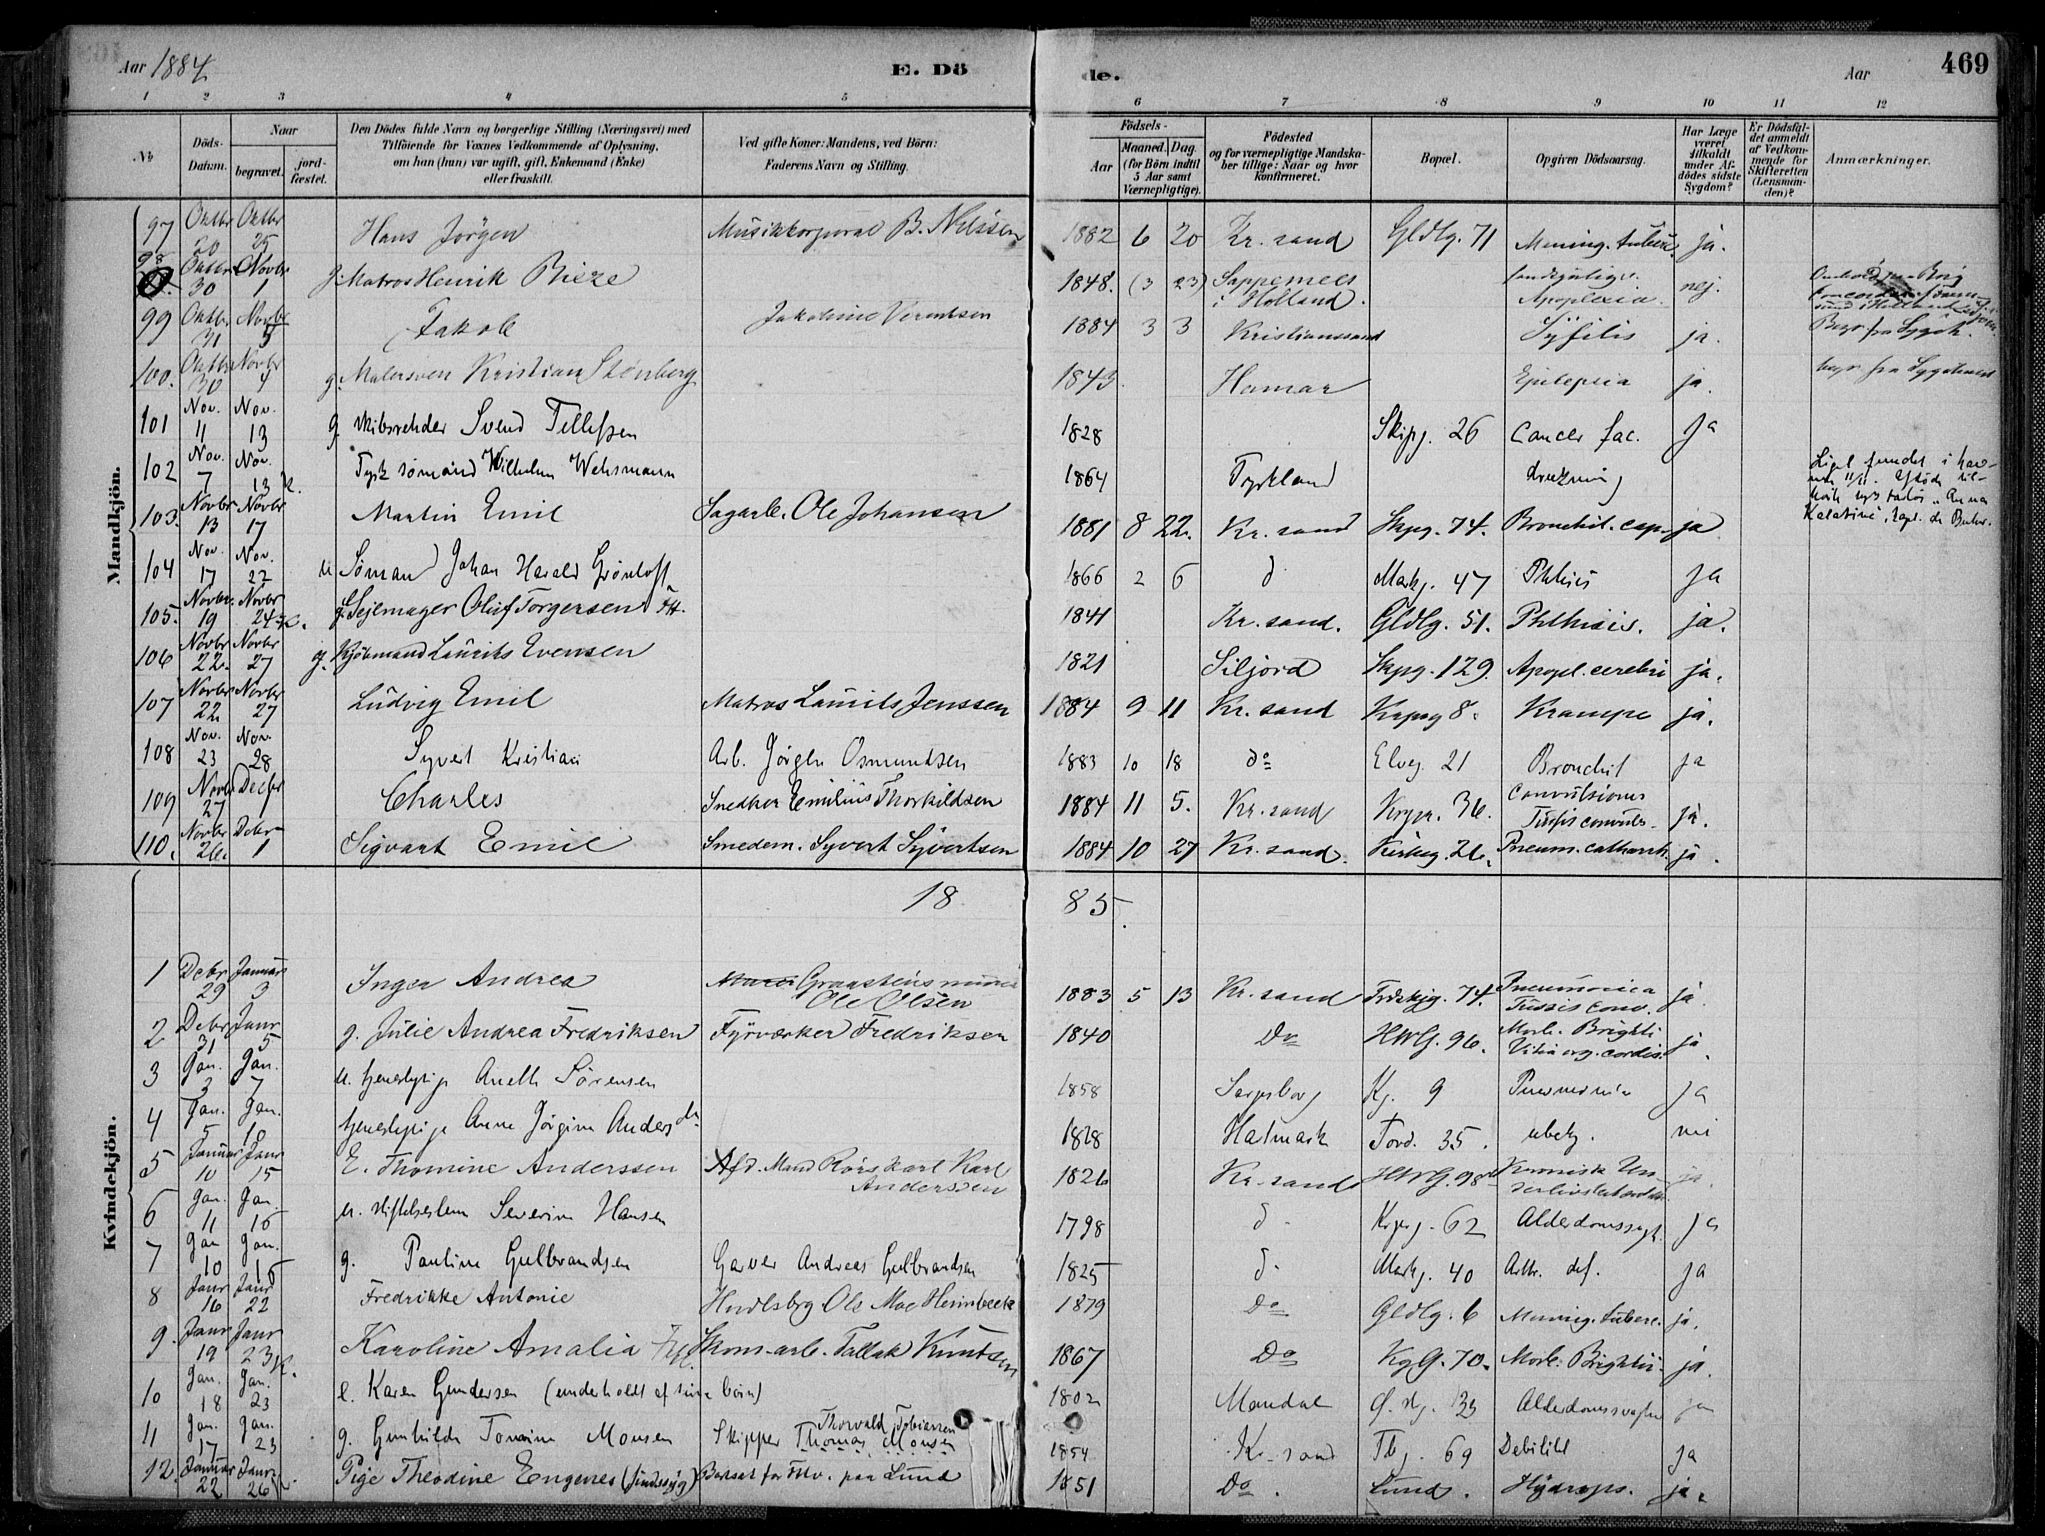 Aar 1884
E. Dö
de.
Aar
469
1 2 3 4 5 6 7 8 9 10 11 12
№
Döds-Datum.
Naar
begravet.
jord-fæstet.
Den Dödes fulde Navn og borgerlige Stilling (Næringsvei) med
Tilföiende for Voxnes Vedkommende af Oplysning,
om han (hun) var ugift, gift, Enkemand (Enke)
eller fraskilt.
Ved gifte Koner: Mandens, ved Börn:
Faderens Navn og Stilling.
Födsels-
Aar
Maaned. Dag.
(for Börn indtil
5 Aar samt
Værnepligtige).
Födested
og for værnepligtige Mandska-
ber tillige: Naar og hvor
konfirmeret.
Bopæl.
Opgiven Dödsaarsag.
Har Læge
været
tilkaldt
under Af-
dödes sidste
Sygdom?
Er Dödsfal-
det anmeldt
af Vedkom-
mende for
Skifteretten
(Lensman-
den)?
Anmærkninger.
Mandkjön.
97 Oktbr 20 Oktbr 25 Hans Jörgen Musikkorporal B. Nilssen 1882 6 20 Kr. sand Gldlg. 71 Mening. tuberc. ja.
98 Oktbr 30 Novbr 1 g. Matros Henrik Bieze 1848. (3 23) Sappemeer i Holland. Apoplexia. nej.
99 Oktbr 31 Novbr 5 Jakob Jakobine Berentsen 1884 3 3 Kristianssand Syfilis ja. Begr. fra Sygeh.
100. Oktbr 30 Novbr 4 g. Malersven Kristian Stenberg 1843. Hamar Epilepsia ja. begr. fra Sygehuset
101 Nov. 11 Nov. 13 g. skibsreder Svend Tellefsen 1828 Skipg. 26 Cancer fac. ja
102 Nov. 7 Nov. 13 k. Tysk sømand Wilhelm Wehsmann 1864 Tyskland drukning Liget fundet i hav-
103. Novbr 13 Novbr 17 Martin Emil Sagarb. Ole Johansen 1881 8 22. Kr. sand Skpg. 74. Bronchit. cap. ja
104 Nov. 17 Nov. 22 u Sømand Johan Harald Grønloft 1866 2 6 d Markg. 47 Phthisis ja
105. Novbr. 19 Novbr 24 g. Sejlmager Oluf Torgersen 1841 Kr. sand. Gldlg. 51. Phthisis. ja.
106 Novbr 22. Novbr 27 g. Kjöbmand Laurits Evensen 1821 Siljord Skpg. 129. Apopl. cerebri ja.
107 Novbr 22 Novbr 27 Ludvig Emil Matros Laurits Jenssen 1884 9 11 Kr. sand Krpsg 8. Krampe ja.
108 Nov. 23 Nov. 28 Syvert Kristian Arb. Jörgen Osmundsen 1883 10 18 do Elveg. 21 Bronchit ja
109 Novbr 27 Decbr 1 Charles Snedker Emilius Thorkildsen 1884 11 5. Kr. sand 36. Convulsiones Tussis convuls. ja.
110. Novbr 26. Debr 1 Sigvart Emil Smedem. Syvert Syvertsen 1884 10 27 Kr. sand. Kirkeg. 26. Pneum. catharrh. ja.
18 85.
Kvindekjön.
1 Debr 29 Januar 3 Inger Andrea Graastensmurer Ole Olsen 1883 5 13 Kr. sand Fdrskjg. 74. Pneumonica Tussis conv. ja
2 Debr 31 Janr 5 g. Julie Andrea Fredriksen Fyrværker Fredriksen 1840 Do HWG. 96. Morb. Brighti Vitia org. cordis. ja.
3 Jan. 3 Jan. 7 u. tjenestepige Aneth Sørensen 1858 Sarpsborg Kg. 9 Pneumonie ja
4 Jan. 5 Jan. 10 tjenestepige Anne Jörgine Andersdtr 1828 Hedmark Tord. 35. ubekj. nei
5 Januar 10 Janr 15 E. Thomine Anderssen Afd. Mand Rorskarl Karl Anderssen 1826 Kr. sand HWG. 98 Kronisk ja.
6 Jan. 11 Jan. 16 u. stiftelseslem Severine Hansen 1798 d Krgsg. 62 Alderdomssygd. ja
7 Jan 10 Jan. 15 g. Pauline Gulbrandsen Garver Andreas Gulbrandsen 1825 d Markg. 40 Arthr. def. ja
8 Janr 16 Janr 22 Fredrikke Antonie Hndlsbrg Ole Moe Heimbeck 1879 Do Gldlg. 6 Mening. tuberc. ja.
9. Janr 19 Janr 23 k. Karoline Amalia Skom-arb. Tallak Knutsen 1867 Do Kg G. 70. Morb. Brightii. ja.
10 Jan. 18 Jan. 23 e. Karen Gundersen (underholdt af sine børn) 1802 Mandal Ø. stg. 33 Alderdomssvaghed ja
11 Jan. 17 Jan. 23 g. Gunhilde Tomine Monsen Skipper Thorvald Tobiassen Thomas Monsen 1854 Kr. sand Tbg. 69 Debilitet ja
12. Januar 22 Janr 26 Pige Theodine Engenes (sindssyg) Bosat for Fttv. paa Lund 1851 Do. Lund. Hydrops. ja.